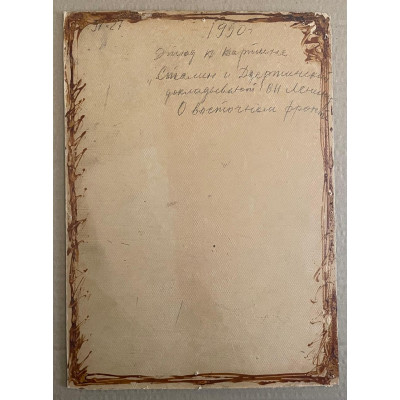 31-27
1950г
Этюд к картине
"Сталин и Дзержинский
докладывают ВИ Ленину
О восточном фронте